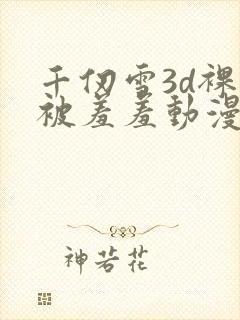 千仞雪3d裸
被羞羞動漫
神若花